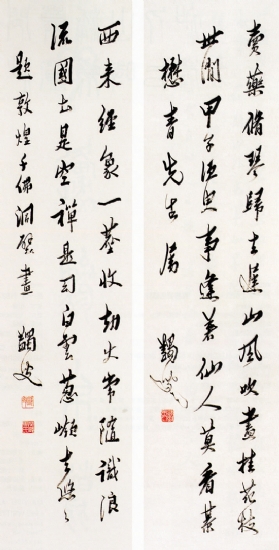 賣藥脩琴歸去遲山風吹盡桂花枝
世間甲子須臾事逢著仙人莫看棊
懋青先生屬 蠲叟
西來經象一荃收劫火常隨識浪
流國土是空禪是幻白雲葱嶺去悠々
題敦煌千佛洞壁畫 蠲叟